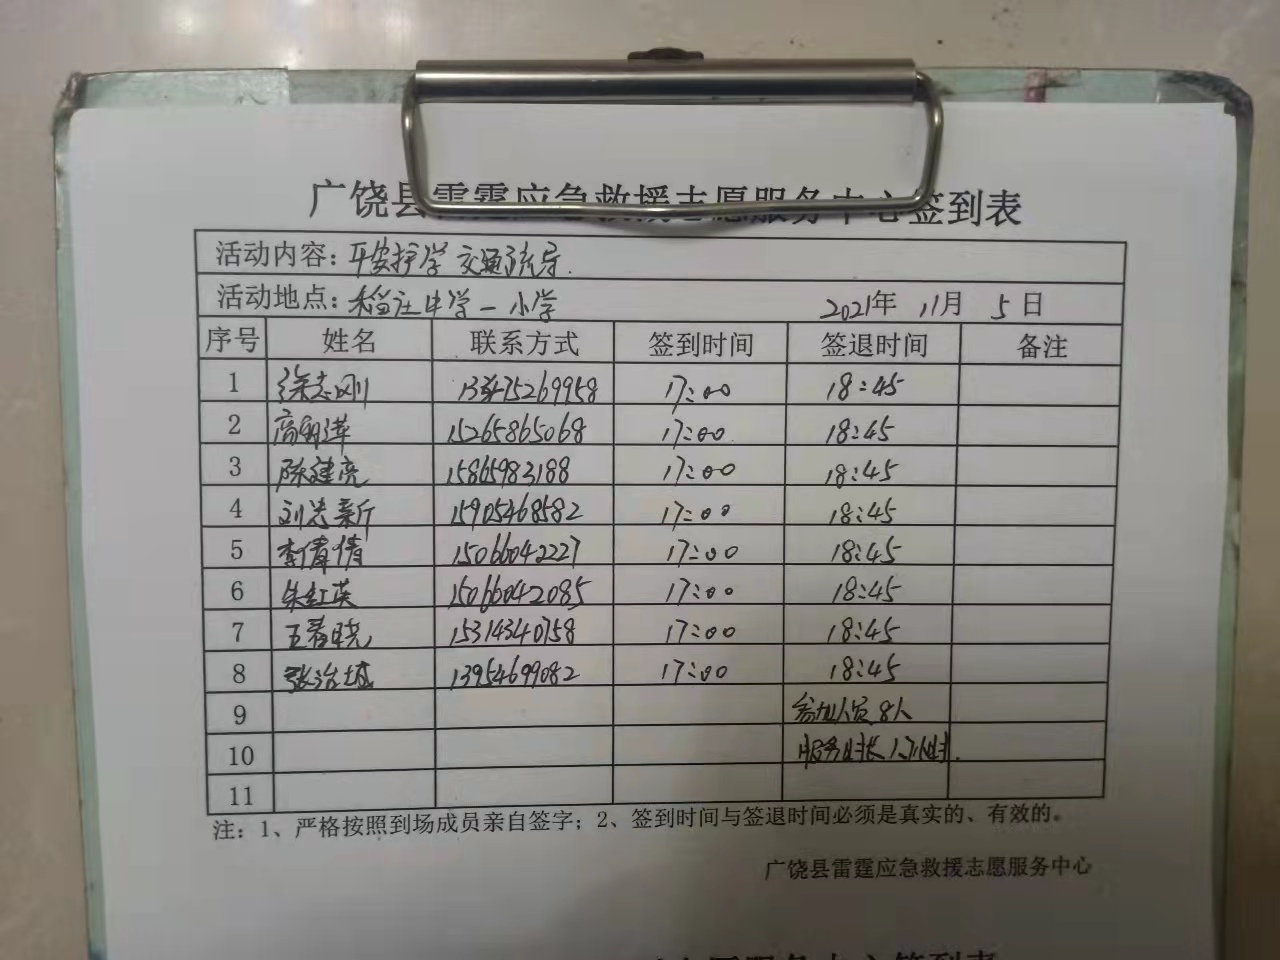 广饶县雷霆应急救援志愿服务中心签到表
活动内容：平安护学 交通疏导.
活动地点：稻庄中学一小学 2021年 11月 5日
序号 姓名 联系方式 签到时间 签退时间 备注
1 徐志刚 13475269958 17:00 18:45
2 高明萍 15265865068 17:00 18:45
3 陈建亮 15865983188 17:00 18:45
4 刘志新 15905468582 17:00 18:45
5 李倩倩 15066042227 17:00 18:45
6 朱红英 15066042085 17:00 18:45
7 王春晓 15314340758 17:00 18:45
8 张治城 13954699082 17:00 18:45
9 参加人员 8人
10 服务时长 1.7小时.
11
注：1、严格按照到场成员亲自签字；2、签到时间与签退时间必须是真实的、有效的。
广饶县雷霆应急救援志愿服务中心